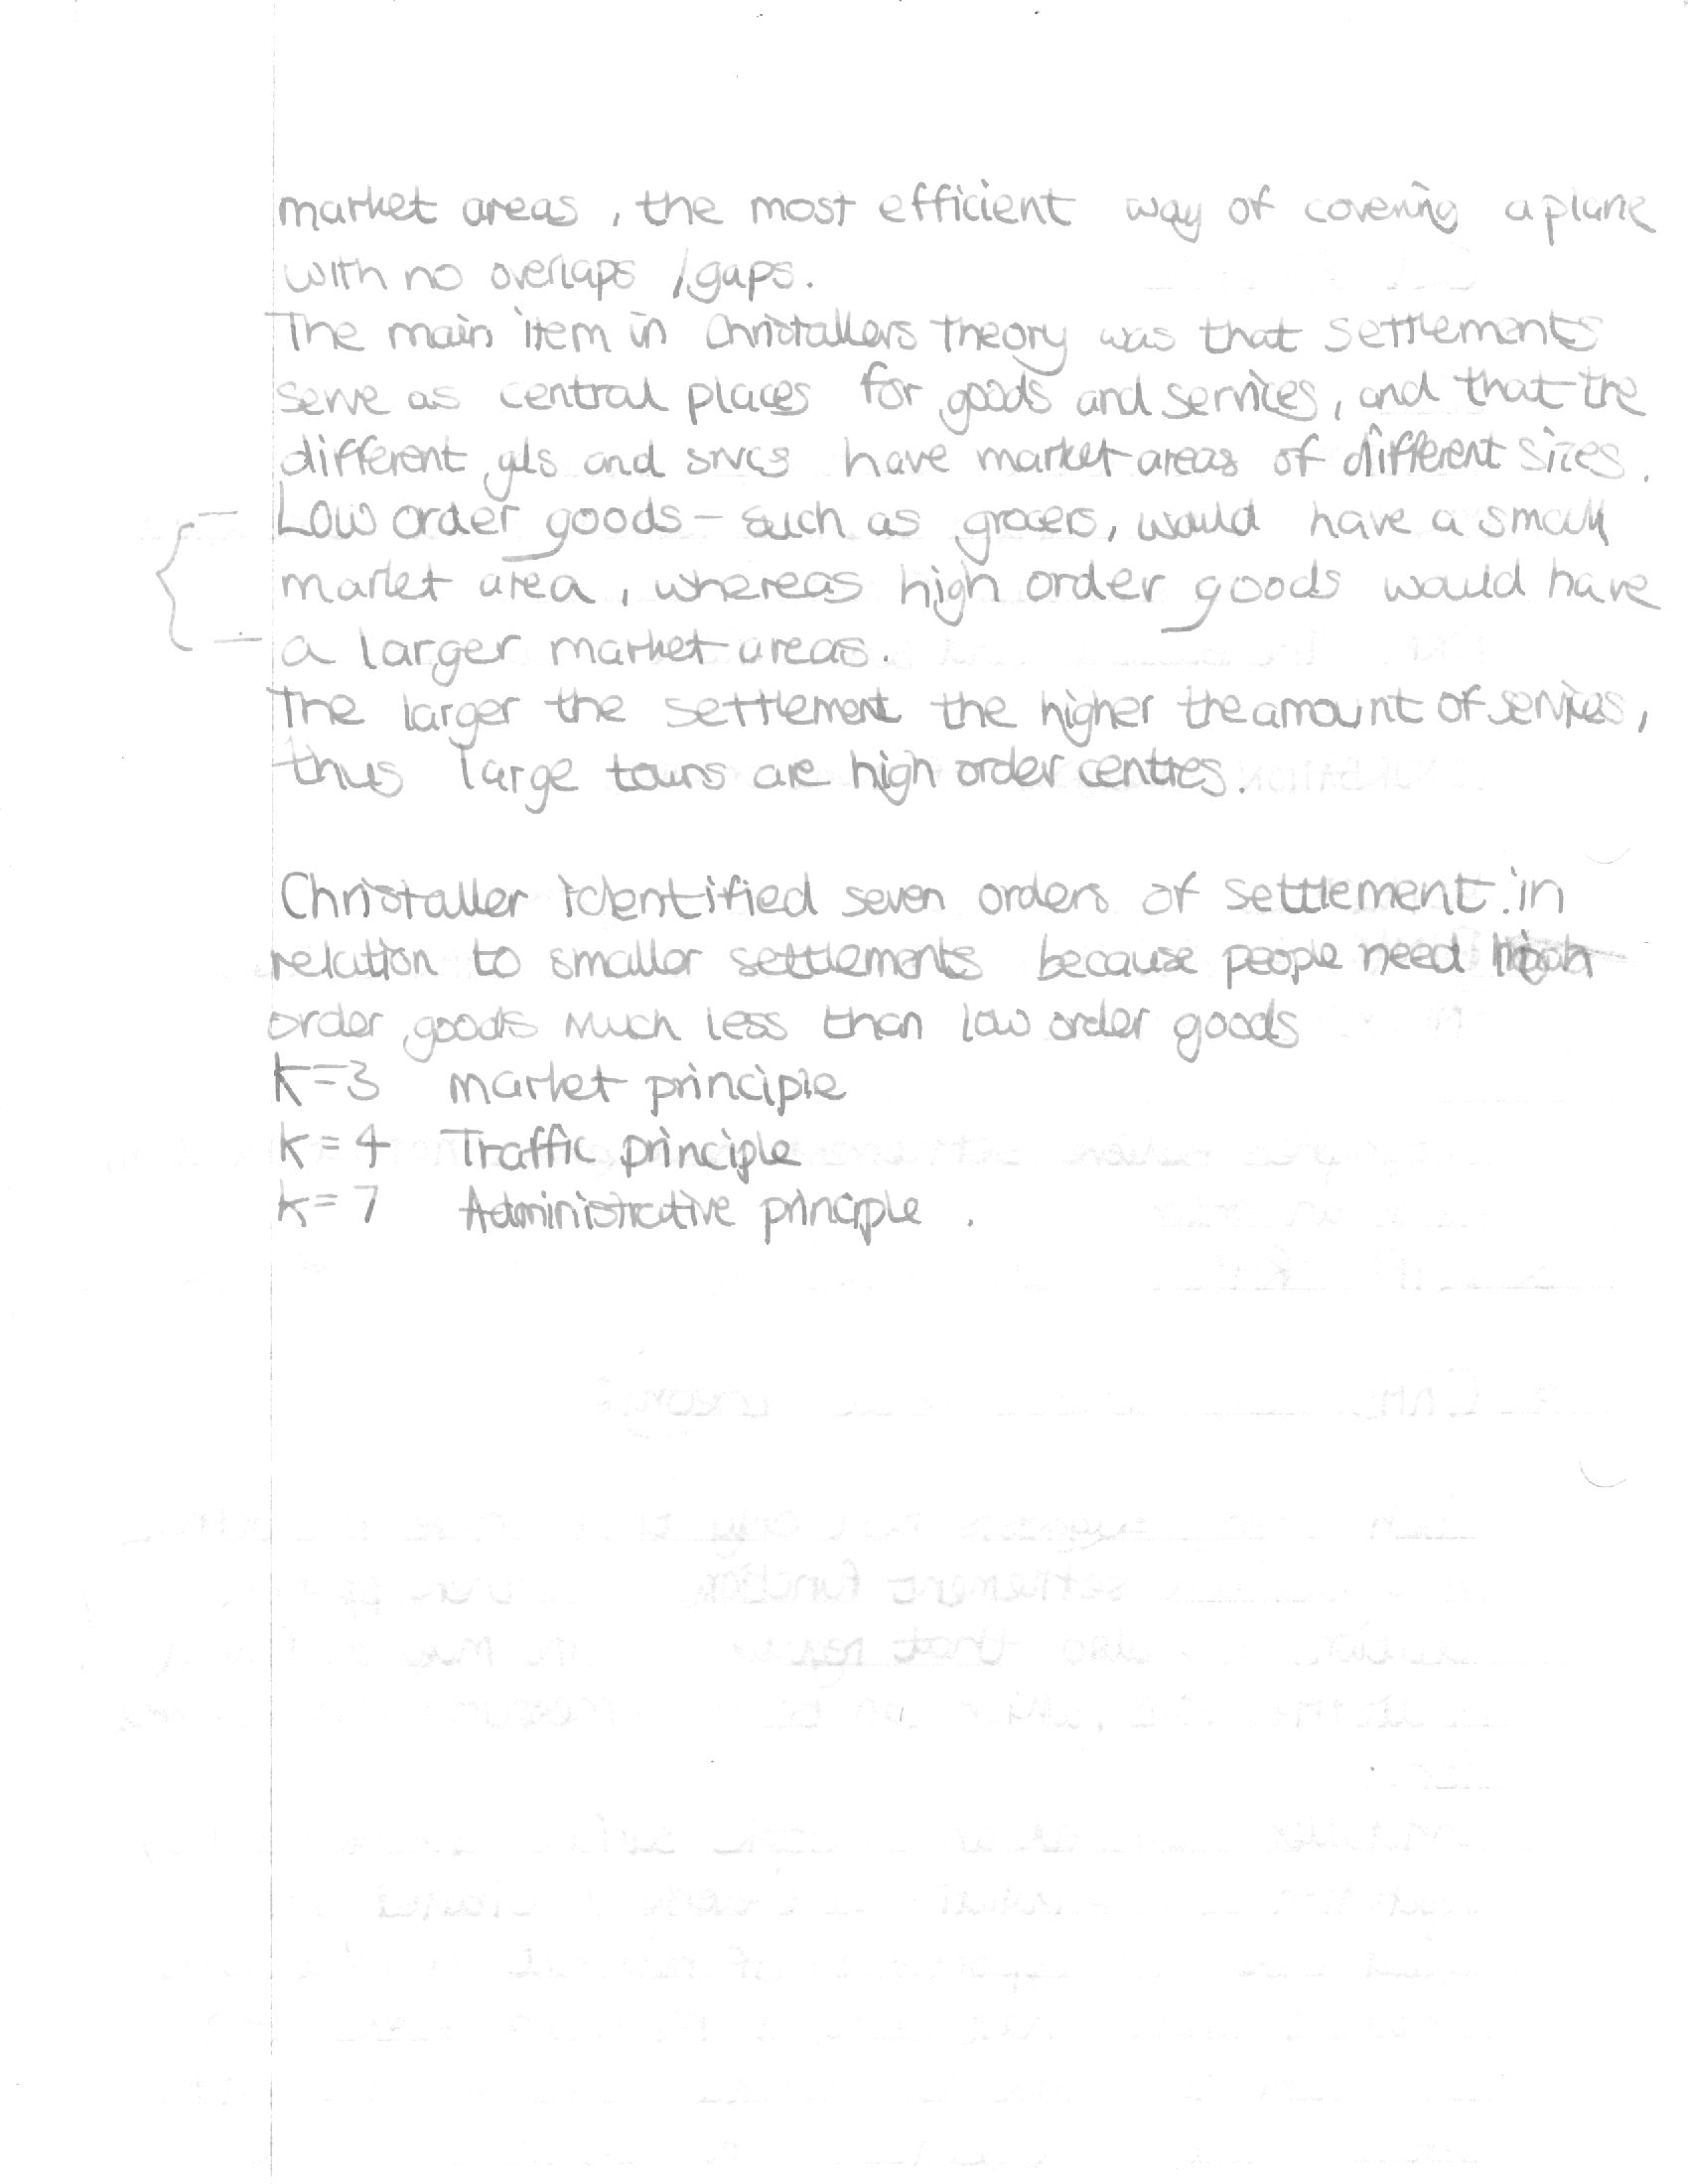 market areas, the most efficient way of covering a plane
with no overlaps /gaps.
The main item in Christallers Theory was that settlements
serve as central places for goods and services, and that the
different gds and srvcs have market areas of different sizes.
Low order goods - such as grocers, would have a small
market area, whereas high order goods would have
a larger market areas.
The larger the settlement the higher the amount of services,
thus large towns are high order centres.
Christaller identified seven orders of settlement in
relation to smaller settlements because people need high
order goods much less than low order goods
K=3 market principle
K=4 Traffic principle
K=7 Administrative principle.